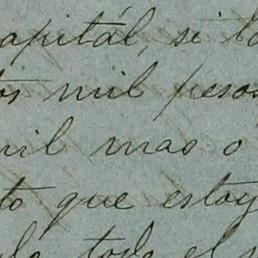 capitál, si la
tos mil pesos
mil mas o
to que estoy
todo el